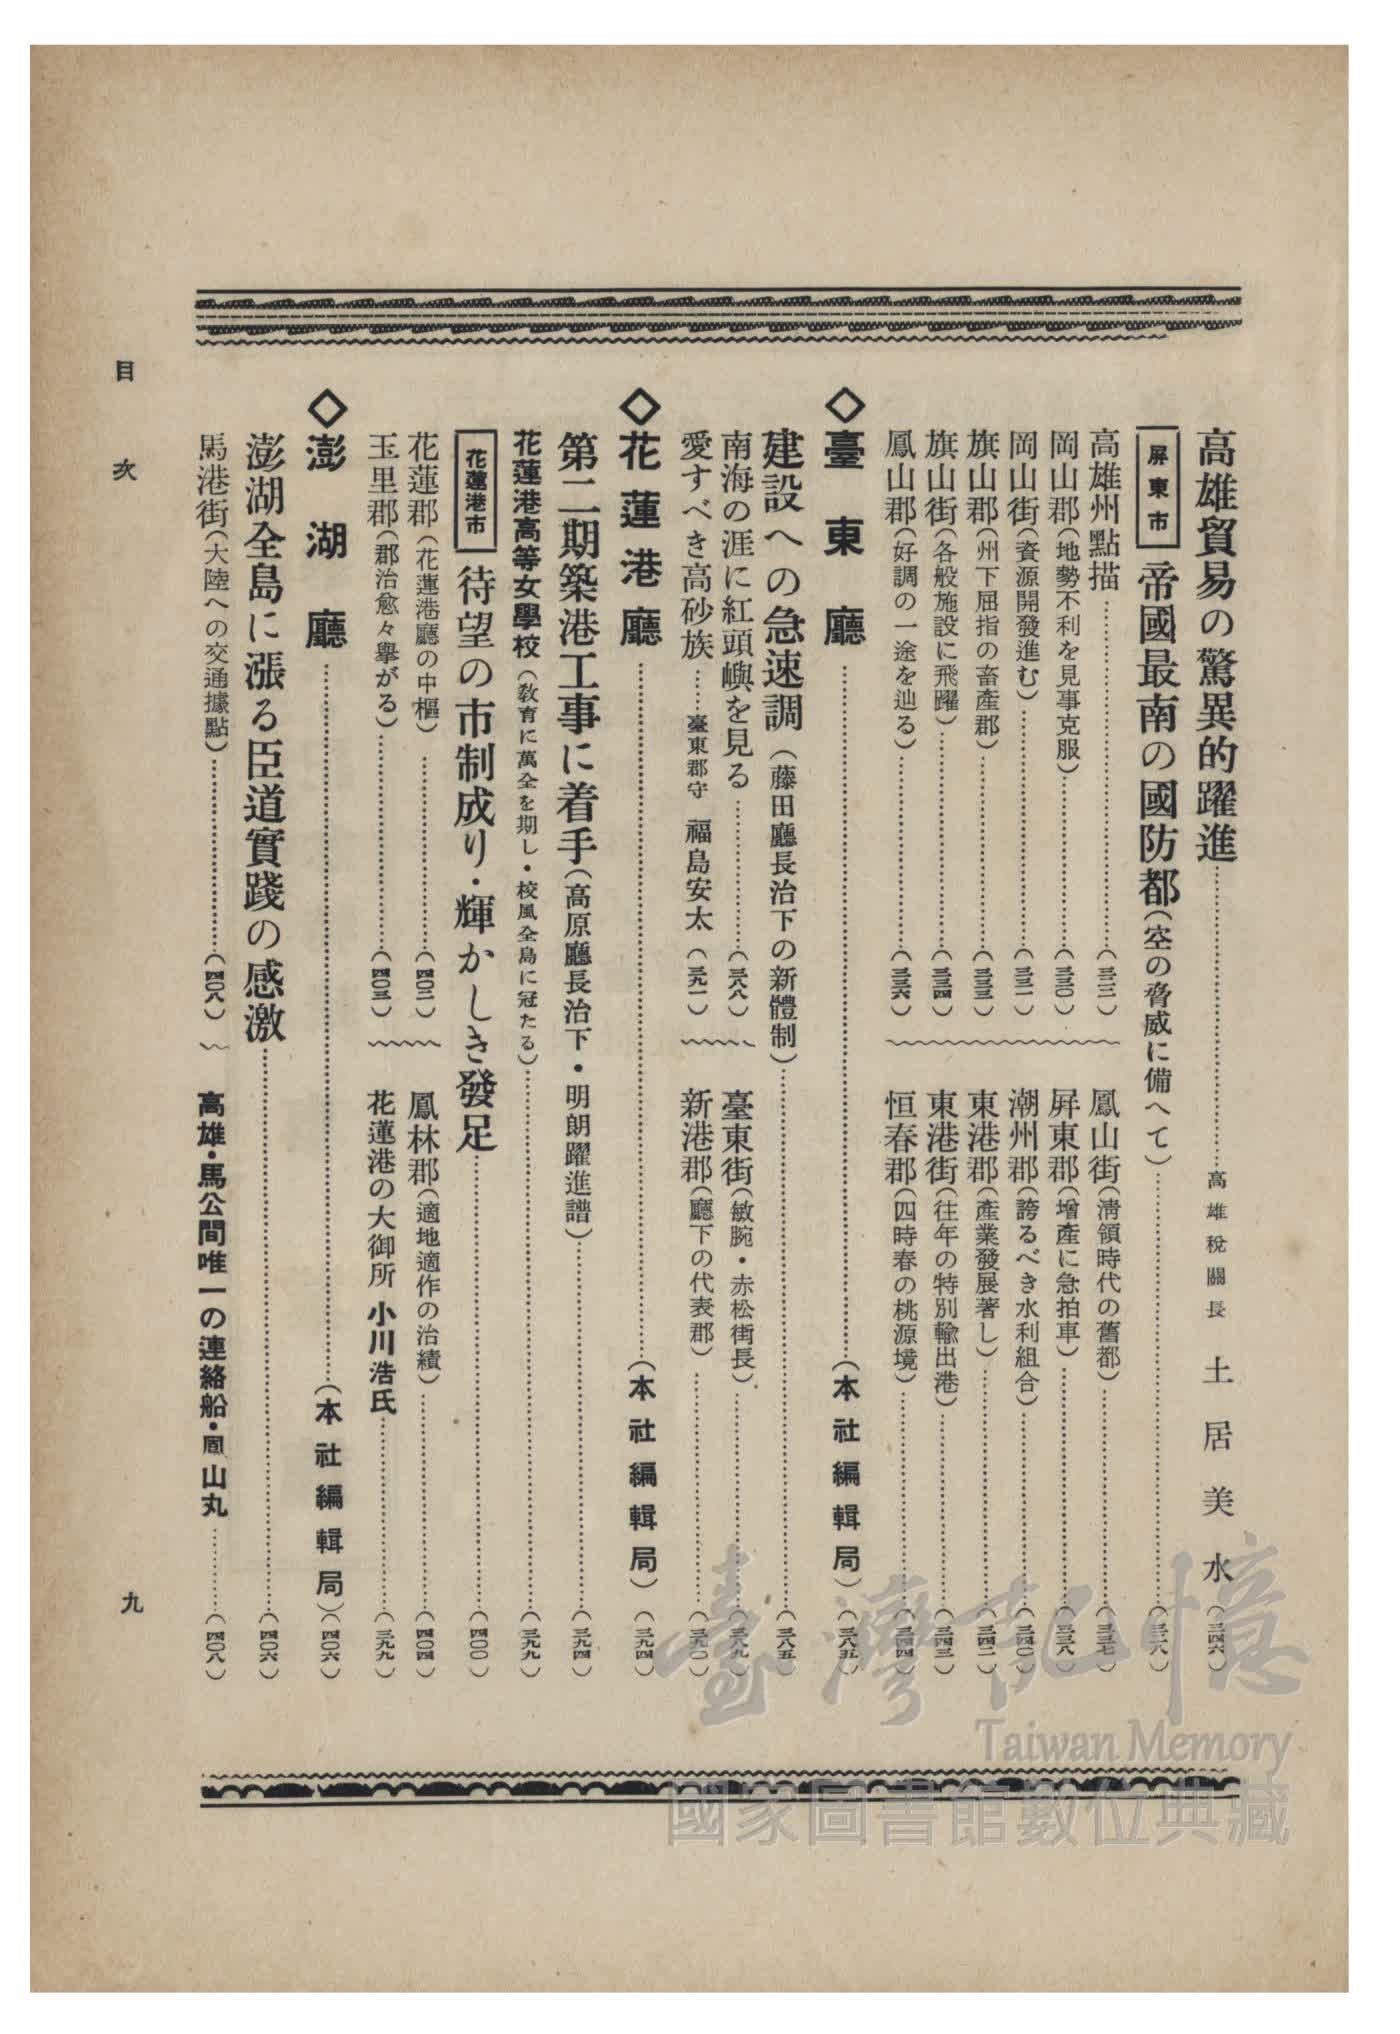 高雄貿易の驚異的躍進……高雄稅關長 土居美水（三四六）
屏東市 帝國最南の國防都（空の脅威に備へて）……（三二八）
高雄州點描……（三三二）
鳳山街（淸領時代の舊都）……（三三七）
岡山郡（地勢不利を見事克服）……（三三〇）
屏東郡（增產に急拍車）……（三三八）
岡山街（資源開發進む）……（三三一）
潮州郡（誇るべき水利組合）……（三四〇）
旗山郡（州下屈指の畜產郡）……（三三三）
東港郡（產業發展著し）……（三四二）
旗山街（各般施設に飛躍）……（三三四）
東港街（往年の特別輸出港）……（三四三）
鳳山郡（好調の一途を辿る）……（三三六）
恒春郡（四時春の桃源境）……（三四四）
◇臺東廳……（本社編輯局）（三八五）
建設への急速調（藤田廳長治下の新體制）……（三八五）
南海の涯に紅頭嶼を見る……（三八八）
臺東街（敏腕・赤松街長）……（三八九）
愛すべき高砂族……臺東郡守 福島安太（三九一）
新港郡（廳下の代表郡）……（三九〇）
◇花蓮港廳……（本社編輯局）（三九四）
第二期築港工事に着手（高原廳長治下・明朗躍進譜）……（三九四）
花蓮港高等女學校（敎育に萬全を期し・校風全島に冠たる）……（三九九）
花蓮港市 待望の市制成り・輝かしき發足……（四〇〇）
花蓮郡（花蓮港廳の中樞）……（四〇二）
鳳林郡（適地適作の治績）……（四〇四）
玉里郡（郡治愈々擧がる）……（四〇三）
花蓮港の大御所 小川浩氏……（三九九）
◇澎湖廳……（本社編輯局）（四〇六）
澎湖全島に漲る臣道實踐の感激……（四〇六）
馬港街（大陸への交通據點）……（四〇八）
高雄・馬公間唯一の連絡船・岡山丸……（四〇八）
目次
九
臺灣記憶
Taiwan Memory
國家圖書館數位典藏